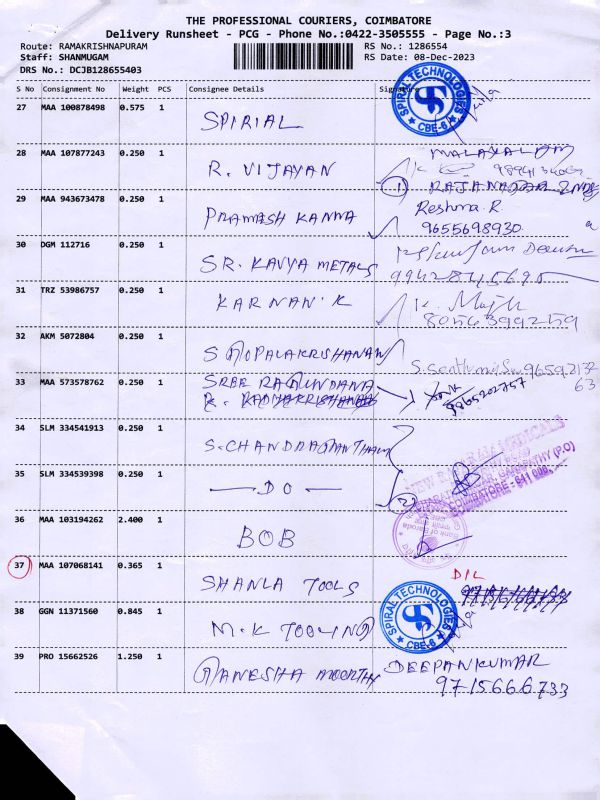 THE PROFESSIONAL COURIERS, COIMBATORE
Delivery Runsheet - PCG - Phone No.:0422-3505555 - Page No.:3
Route: RAMAKRISHNAPURAM RS No.: 1286554
Staff: SHANMUGAM RS Date: 08-Dec-2023
DRS No.: DCJB128655403
S No Consignment No Weight PCS Consignee Details Signature
SPIRAL TECHNOLOGIES
CBE-6
27 MAA 100878498 0.575 1 SPIRIAL
28 MAA 107877243 0.250 1 R. VIJAYAN
29 MAA 943673478 0.250 1 PRAMMESH KANNA Reshma R.
9655698930
30 DGM 112716 0.250 1 SR. KAVYA METALS
9942845695
31 TRZ 53986757 0.250 1 KARNAN K
8056399259
32 AKM 5072804 0.250 1 S GOPALAKRISHANAN
33 MAA 573578762 0.250 1 SREE RAGUNDANA
9865202757
34 SLM 334541913 0.250 1 S. CHANDRAGANTHAN
35 SLM 334539398 0.250 1 - DO -
NEW RAJARAM MEDICALS
COIMBATORE - 641 006.
Bank of Baroda
36 MAA 103194262 2.400 1 BOB
37 MAA 107068141 0.365 1 SHANLA TOOLS D/L
38 GGN 11371560 0.845 1 M.K TOOLING
SPIRAL TECHNOLOGIES
CBE-6
39 PRO 15662526 1.250 1 GANESHA MOORTHY DEEPANKUMAR
9715666733